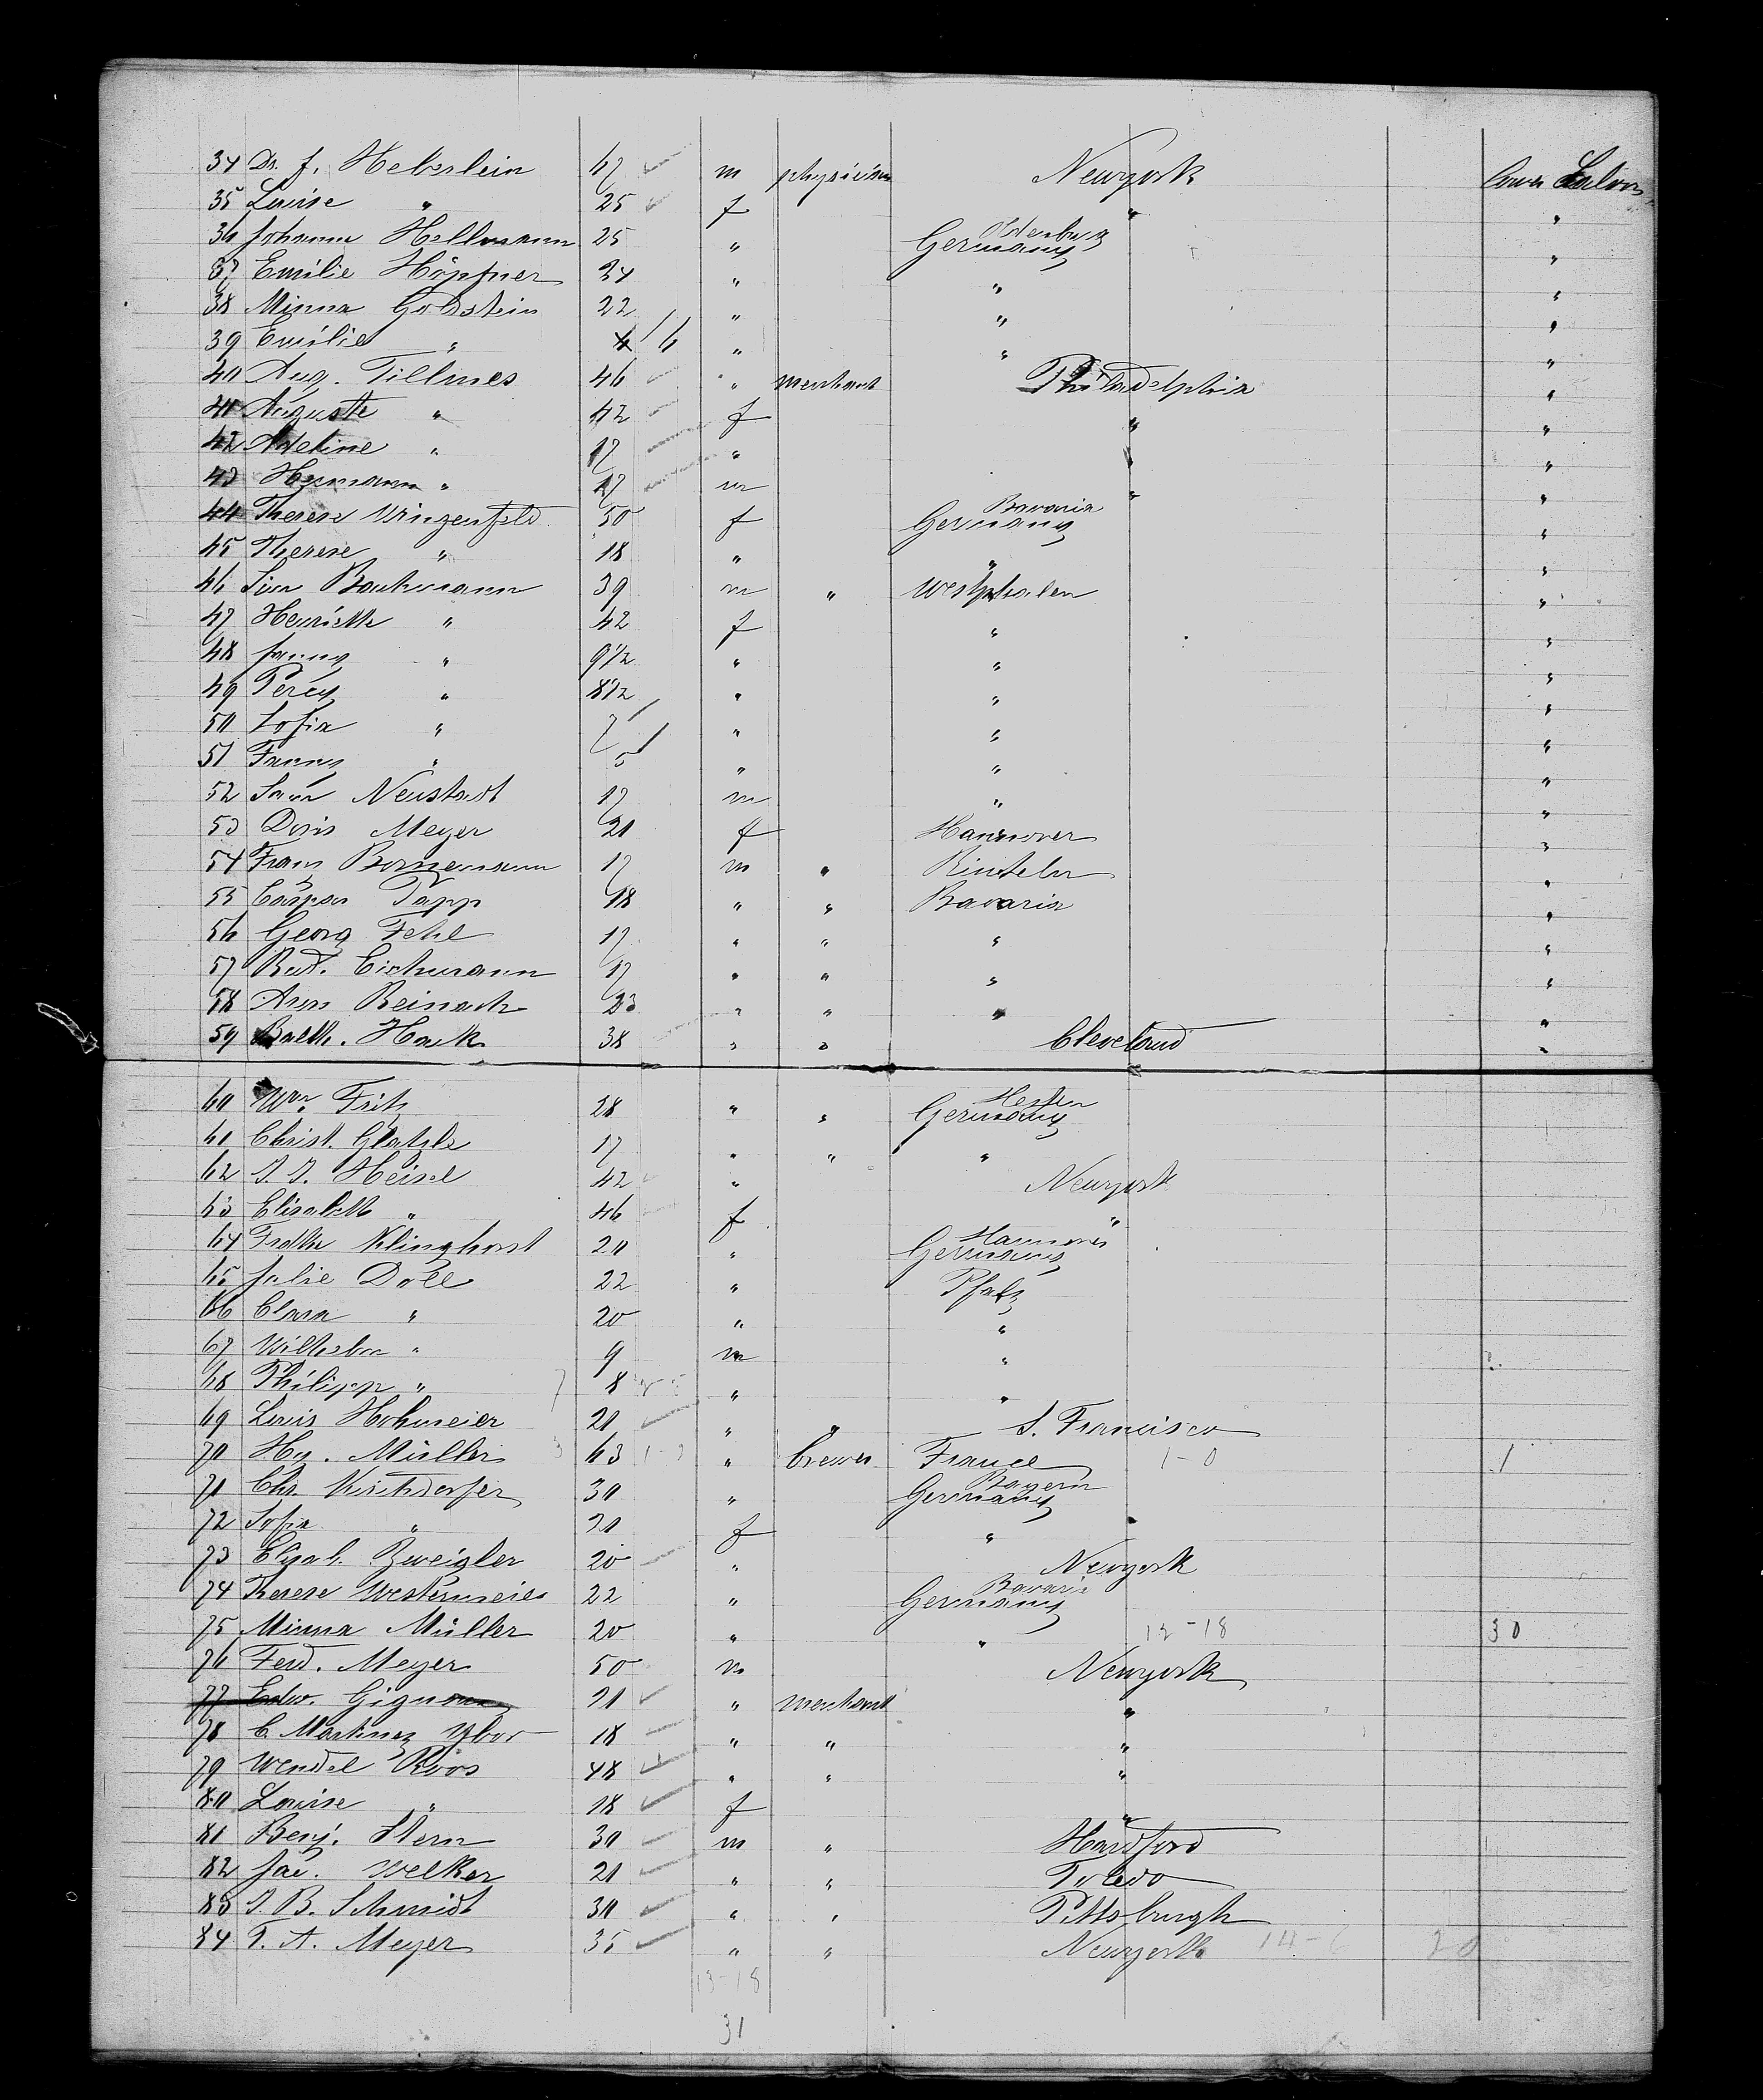 34 Dr. J. Heberlein 47 m physician Newyork lower Saloon
35 Louise " 25 f " "
36 Johanne Hellmann 25 " Oldenburg Germany "
37 Emilie Höpfner 34 " " "
38 Minna Goldstein 22 " " "
39 Emilie " 6 " " "
40 Aug. Tillmes 46 " merchant Philadelphia "
41 Auguste " 42 f " "
42 Adeline " 17 " " "
43 Hermann " 17 m " "
44 Therese Winzenfeld 50 f Bavaria Germany "
45 Therese " 18 " " "
46 Sim 39 m " Westphalen "
47 Henriette " 42 f " "
48 Janny " 9 1/2 " " "
49 Percy " 8 1/2 " " "
50 Sofia " 7 " " "
51 Fanny " 5 " " "
52 Sam Neustadt 17 m " "
53 Doris Meyer 21 f Hannover "
54 Franz Bornemann 17 m " Rinteln "
55 Caspar Papp 18 " " Bavaria "
56 Georg Fehl 17 " " " "
57 Rud. Eichmann 17 " " " "
58 Aron Reinach 23 " " " "
59 Balth. Hauk 38 " " Cleveland "
60 Wm. Fritz 28 " " Hessen Germany
61 Christ. Glatzle 17 " " "
62 J. J. Heisel 42 " Newyork
63 Elisabeth " 46 f "
64 Fredke Klinghorst 20 " Hannover Germany
65 Julie Doll 22 " Pfalz
66 Clara " 20 " "
67 Wilhelm " 9 m "
68 Philipp " 8 " "
69 Louis Hohmeier 21 " " S. Francisco
70 Hy. Müller 63 " brewer France 1-0 1
71 Chr. Kirchdorfer 30 " Bayern Germany
72 Sofia " 21 f "
73 Elisab. Zweigler 20 " Newyork
74 Therese Westermeier 22 " Bavaria Germany
75 Minna Müller 20 " " 12-18 30
76 Ferd. Meyer 50 m Newyork
77 Edw. 21 " merchant "
78 C. Martinez Ybor 18 " " "
79 Wendel Roos 48 " " "
80 Louise " 18 f "
81 Benj. Stern 30 m " Hardford
82 Jac. Welker 21 " " Toledo
83 J. B. Schmidt 30 " " Pittsburgh
84 T. A. Meyer 35 " " Newyork 14-6 20
13-18
31